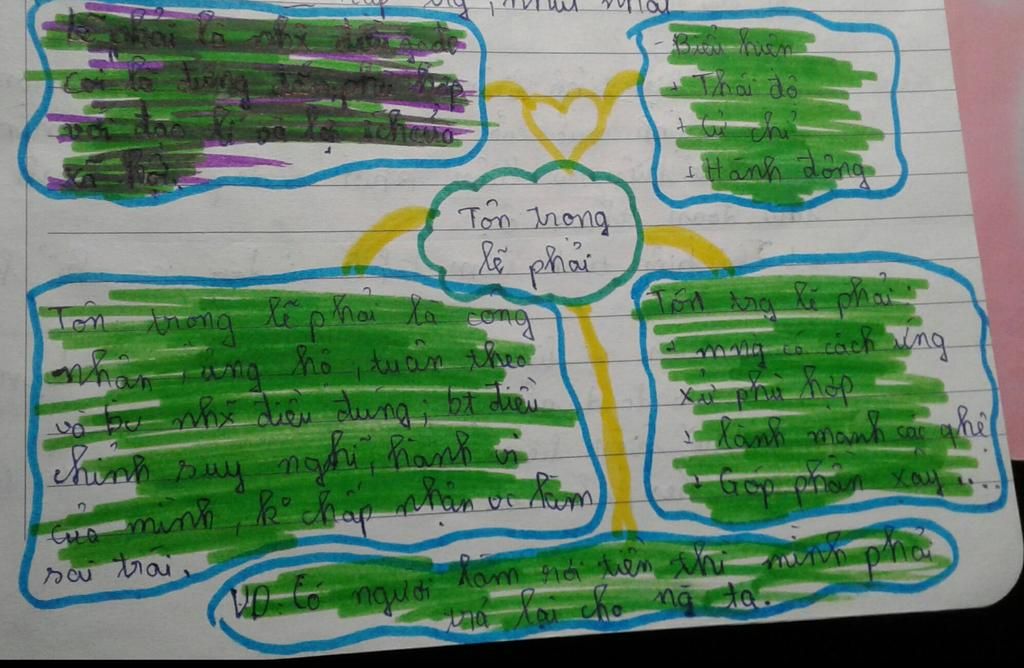 lẽ phải là nhx điều gì đc
coi là đúng đắn, phù hợp
với đạo lí và lợi ích của
xã hội.
- Biểu hiện
+ Thái độ
+ Cử chỉ
+ Hành động
Tôn trọng
lẽ phải
Tôn trọng lẽ phải là công
nhận, ủng hộ, tuân theo
và bv nhx điều đúng; bt điều
chỉnh suy nghĩ, hành vi
của mình, k chấp nhận vc làm
sai trái.
Tôn trg lẽ phải:
+ mng có cách ứng
xử phù hợp
+ lành mạnh các qhệ
+ Góp phần xây ...
VD: Có người làm rơi tiền thì mình phải
trả lại cho ng ta.